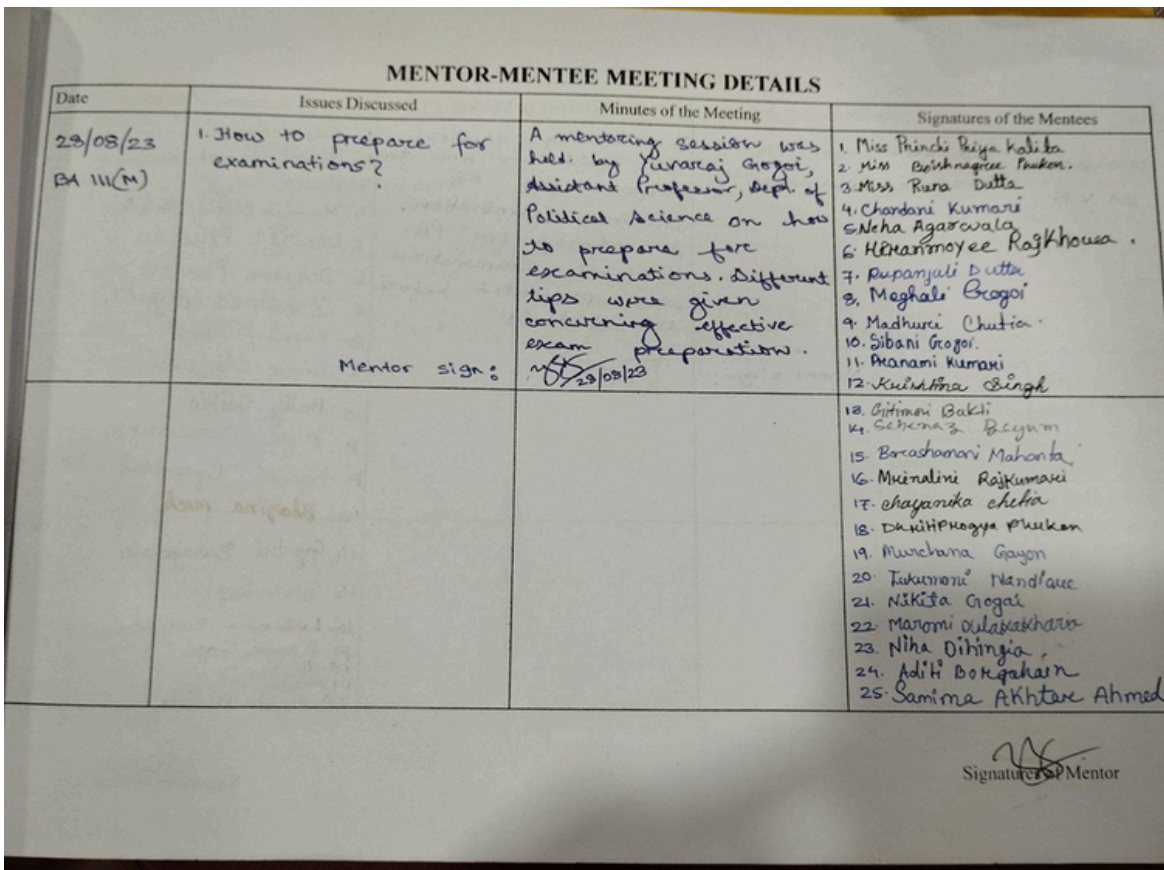 MENTOR-MENTEE MEETING DETAILS
Date
Issues Discussed
Minutes of the Meeting
Signatures of the Mentees
29/08/23
BA III(M)
1. How to prepare for
examinations?
Mentor sign:
A mentoring session was
held by Yuvaraj Gogoi,
Assistant Professor, Dept. of
Political Science on how
to prepare for
examinations. Different
tips were given
concerning effective
exam preparation.
29/08/23
1. Miss Princhi Priya Kalita
2. Miss Boishnagree Phukon.
3. Miss Runa Dutta
4. Chandani Kumari
5. Neha Agarwala
6. Hiranmoyee Rajkhowa.
7. Rupanjali Dutta
8. Meghali Gogoi
9. Madhuri Chutia.
10. Sibani Gogoi.
11. Aranami Kumari
12. Krishtina Singh
13. Gitimoni Bakti
14. Sehenaz Begum
15. Barashamoni Mahanta
16. Mrinalini Rajkumari
17. Chayanika Chetia
18. Dhritiprogya Phukan
19. Murchana Gayon
20. Tukumoni
21. Nikita Gogoi
22. Maromi
23. Niha Dihingia.
24. Aditi Borgohain
25. Samima Akhtar Ahmed
Signatures of Mentor